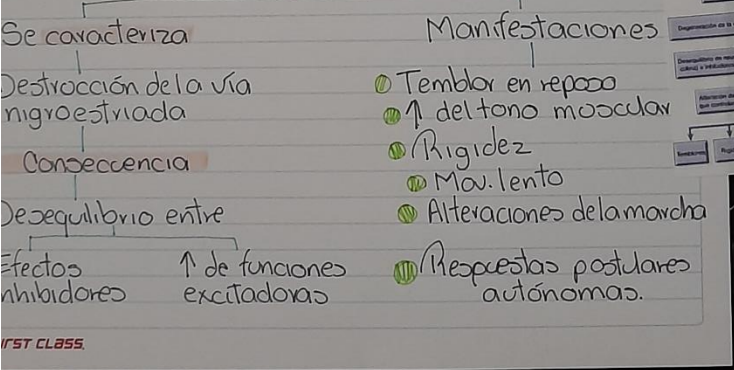 Se caracteriza
Destrucción de la vía
nigroestriada
Consecuencia
Desequilibrio entre
Efectos
inhibidores
↑ de funciones
excitadoras
Manifestaciones
Temblor en reposo
↑ del tono muscular
Rigidez
Mov. lento
Alteraciones de la marcha
Respuestas postulares
autónomas.
FIRST CLASS